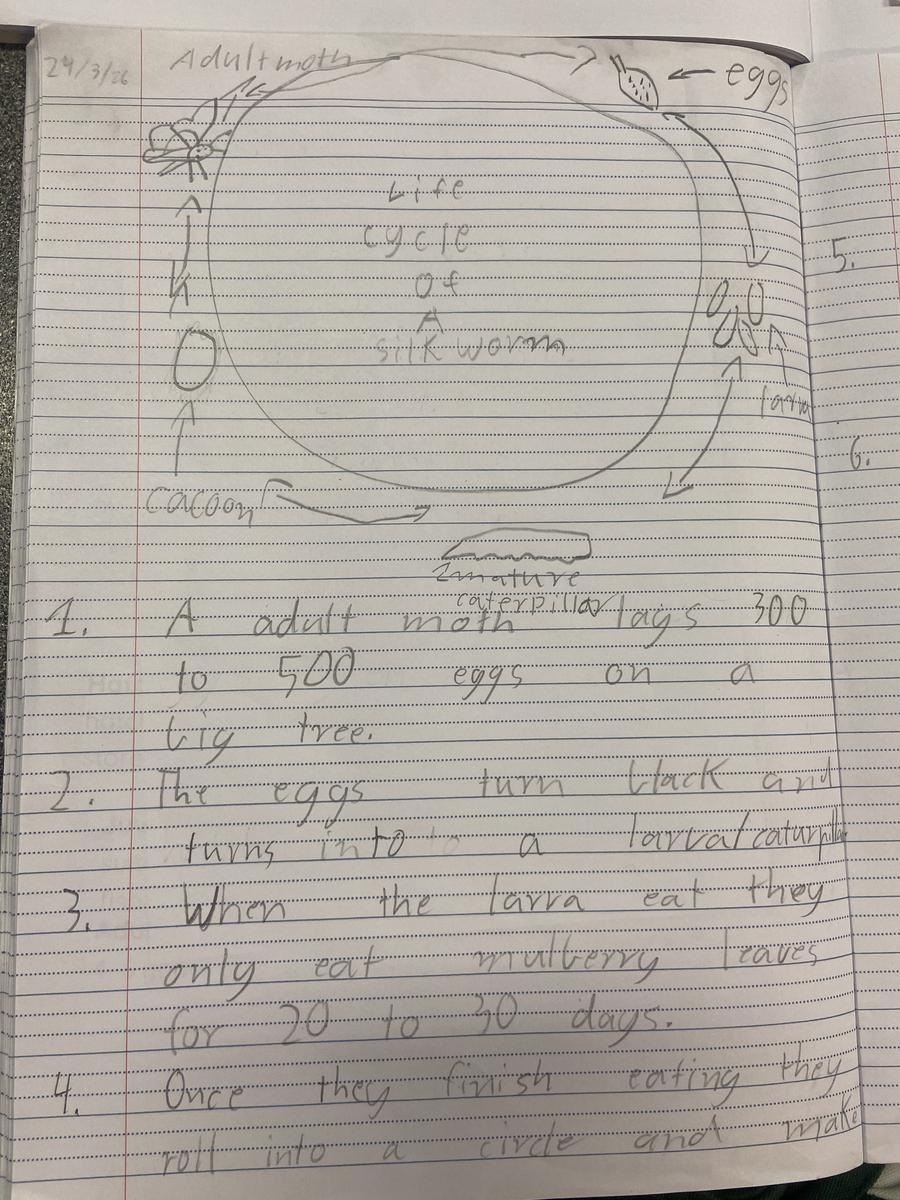 24/3/26
Adult moth
eggs
Life
cycle
Of
A
silk worm
larva
cacoon
mature
caterpillar
1. A adult moth lays 300
to 500 eggs on a
big tree.
2. The eggs turn black and
turns into a larva/caturpillar
3. When the larva eat they
only eat mulberry leaves
for 20 to 30 days.
4. Once they finish eating they
roll into a circle and make
5.
6.